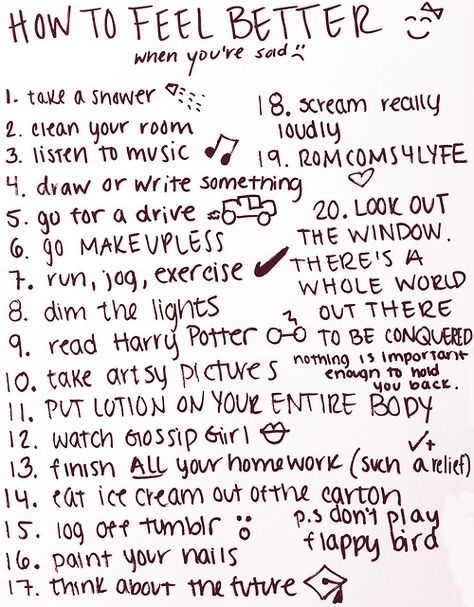 HOW TO FEEL BETTER
when you're sad
1. take a shower
2. clean your room
3. listen to music
4. draw or write something
5. go for a drive
6. go MAKEUPLESS
7. run, jog, exercise
8. dim the lights
9. read Harry Potter
10. take artsy pictures
11. PUT LOTION ON YOUR ENTIRE BODY
12. watch Gossip Girl
13. finish ALL your homework (such a relief)
14. eat ice cream out of the carton
15. log off tumblr
16. paint your nails
17. think about the future
18. scream really
loudly
19. ROMCOMS4LYFE
20. LOOK OUT
THE WINDOW.
THERE'S A
WHOLE WORLD
OUT THERE
TO BE CONQUERED
nothing is important
enough to hold
you back.
p.s don't play
flappy bird